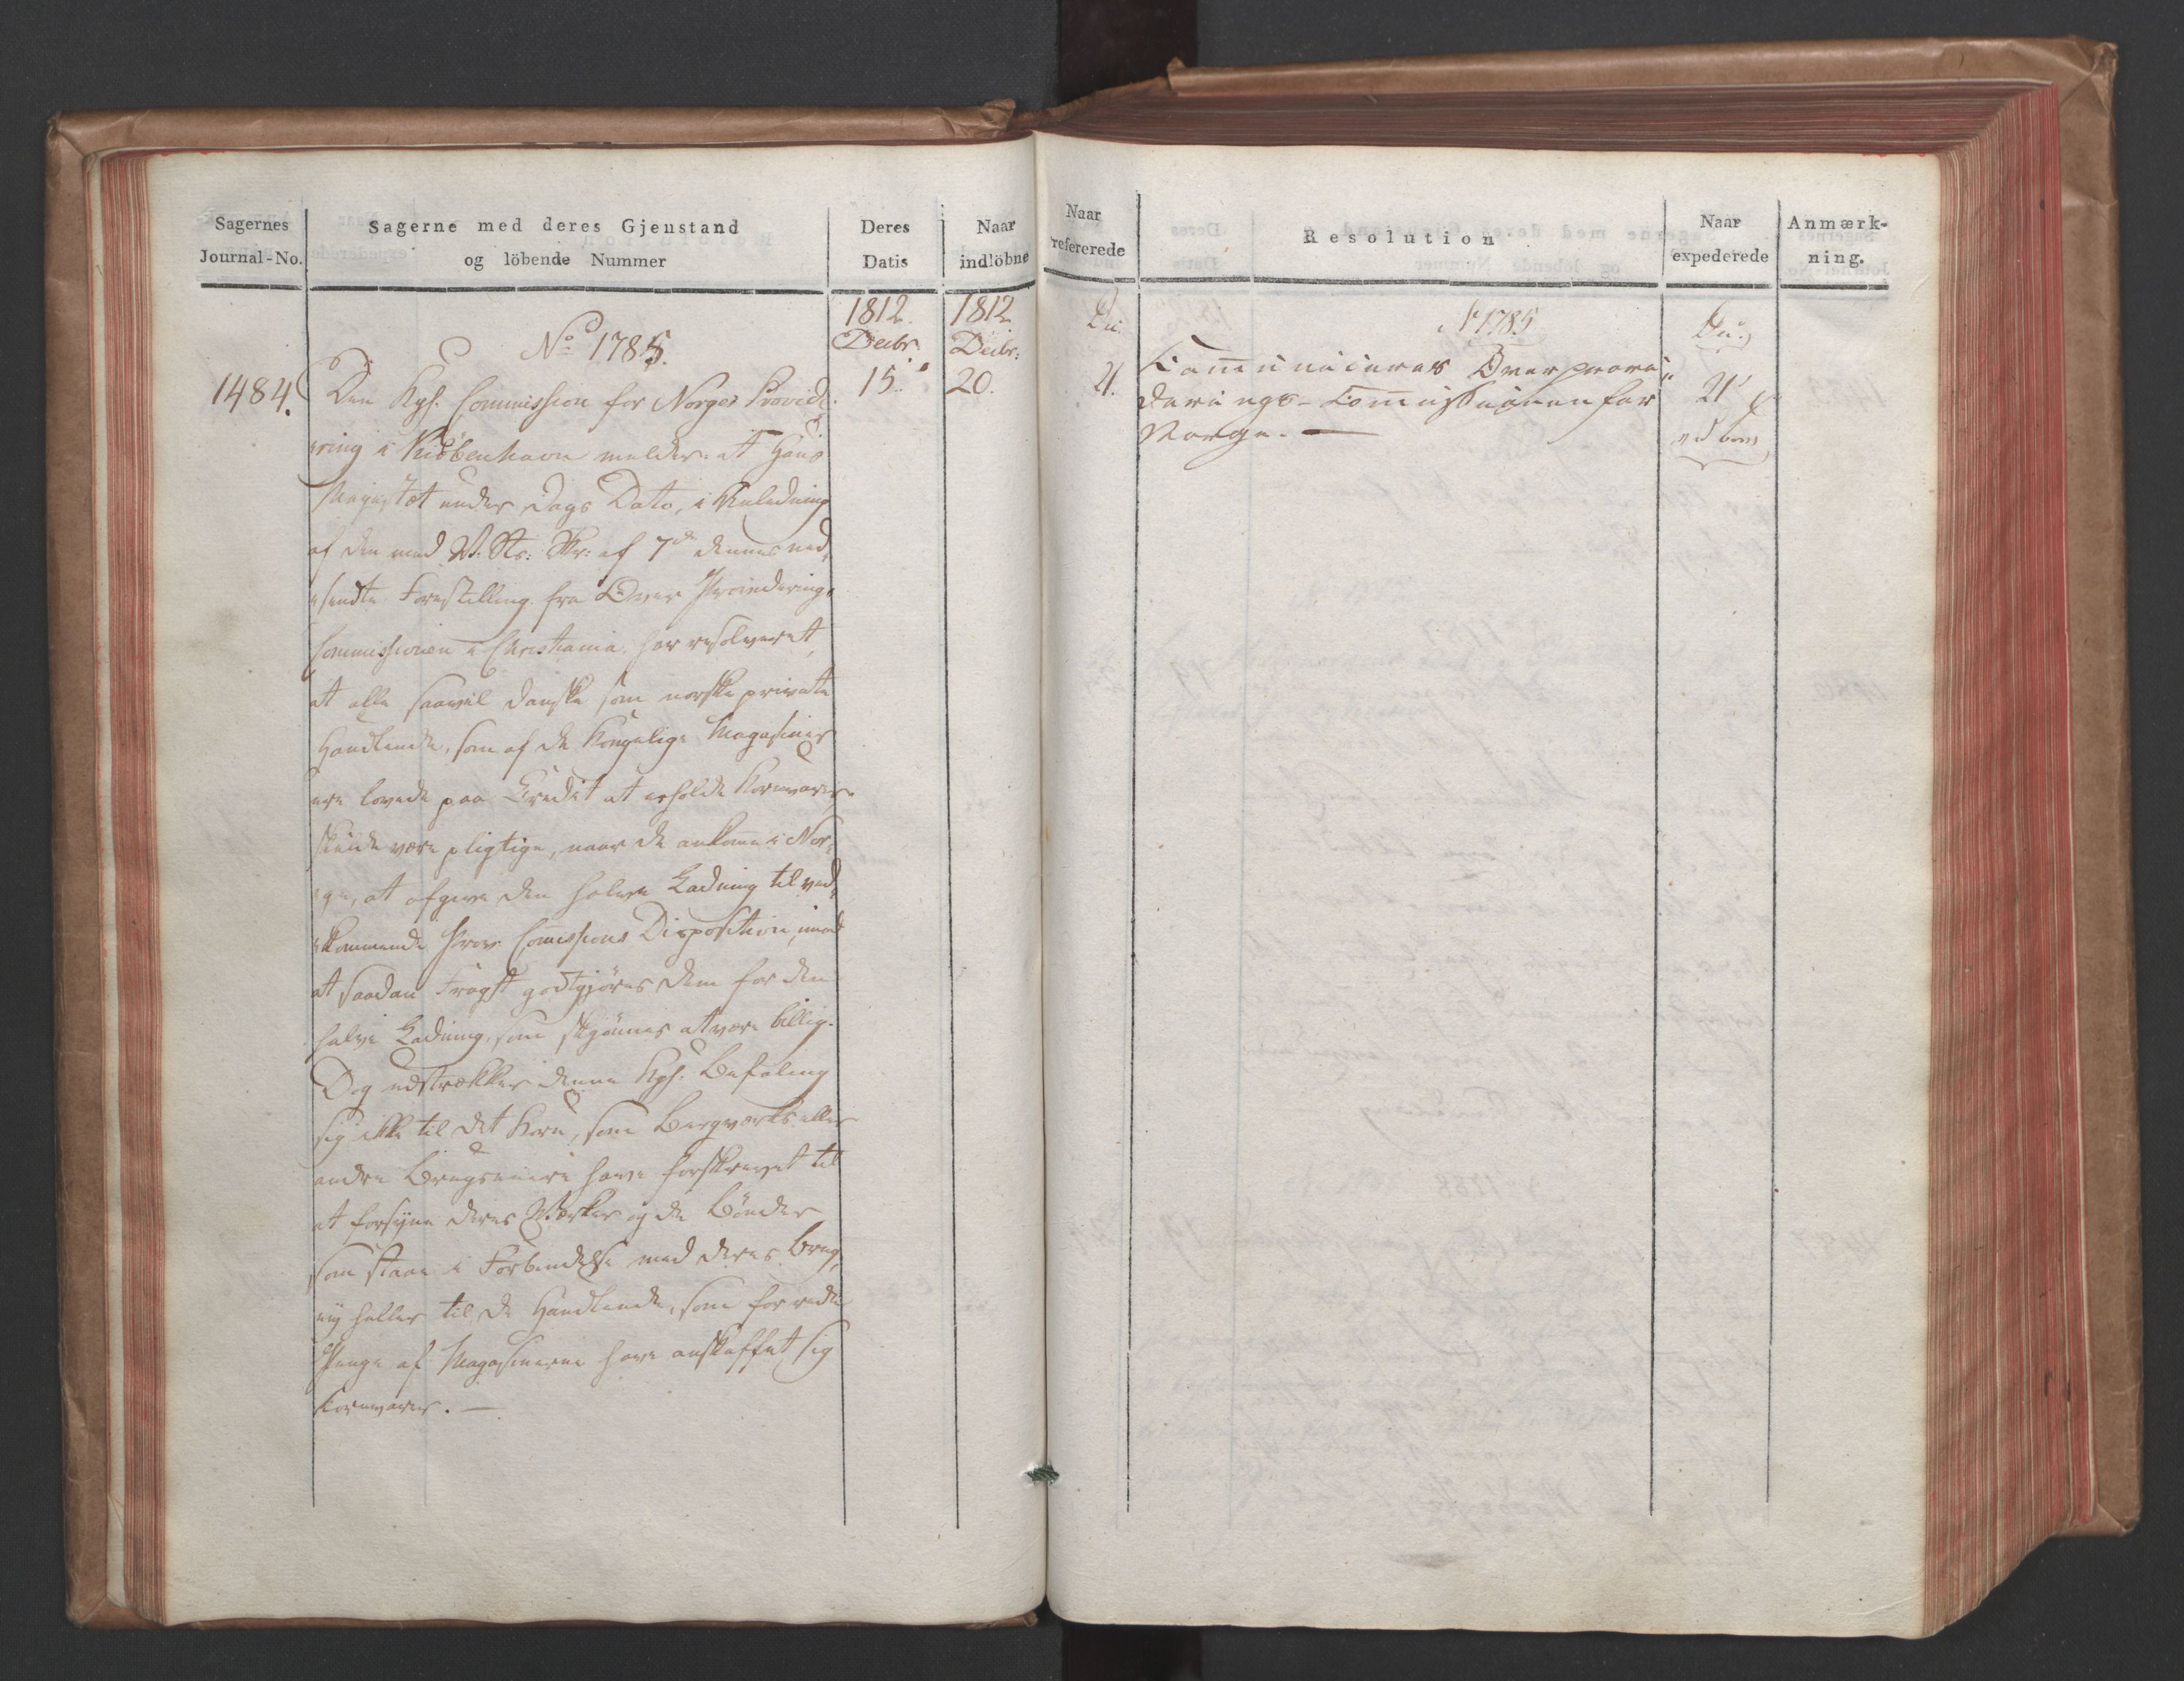 Sagernes
Journal-No.
Sagerne med deres Gjenstand
og löbende Nummer
Deres
Datis
Naar
indlöbne
1812.
Decbr.
1812
Decbr:
No 1785.
1484.
Den Kgl. Commission for Norges Provide-
15.
20.
ring i Kiöbenhavn melder: at Hans
Majestæt under Dags Dato, i Anledning
af den med V. Sts: Skr: af 7de dennes ned-
sendte Forestilling fra Over Providerings
Commissionen i Christiania har resolveret,
at alle saavel danske som norske private
Handlende, som af de Kongelige Magasiner
ere lovede paa Credit at erholde Kornvarer,
skulde være pligtige, naar de ankom̅e i Nor-
ge, at afgive den halve Ladning til ved-
kommende Prov: Com̅issions Disposition, imod
at saadan Fragt godtgjöres dem for den
halve Ladning, som skjönnes at være billig.
Dog udstrækker denne Kgl. Befaling
sig ikke til det Korn, som Bergværks eller
andre Brugseiere have forskrevet til
at forsyne deres Værker og de Bönder
som staae i Forbindelse med deres Brug,
ej heller til de Handlende, som for rede
Penge af Magasinerne have anskaffet sig
Kornvarer. —
Naar
refererede
Resolution
Naar
expederede
Anmærk-
ning.
Du:
No 1785
Du:
21.
Com̅uniceres Overprovi-
derings-Com̅issionen for
Norge. —
21